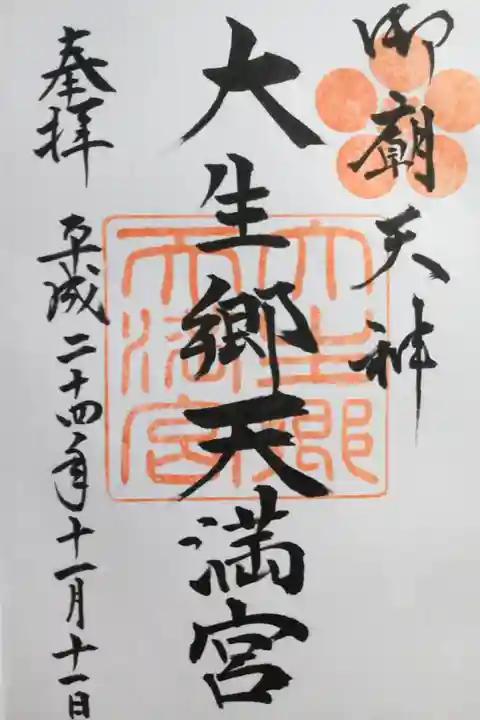 御廟天神
大生郷天満宮
奉拝
平成二十四年十一月十一日
大生郷
天満宮